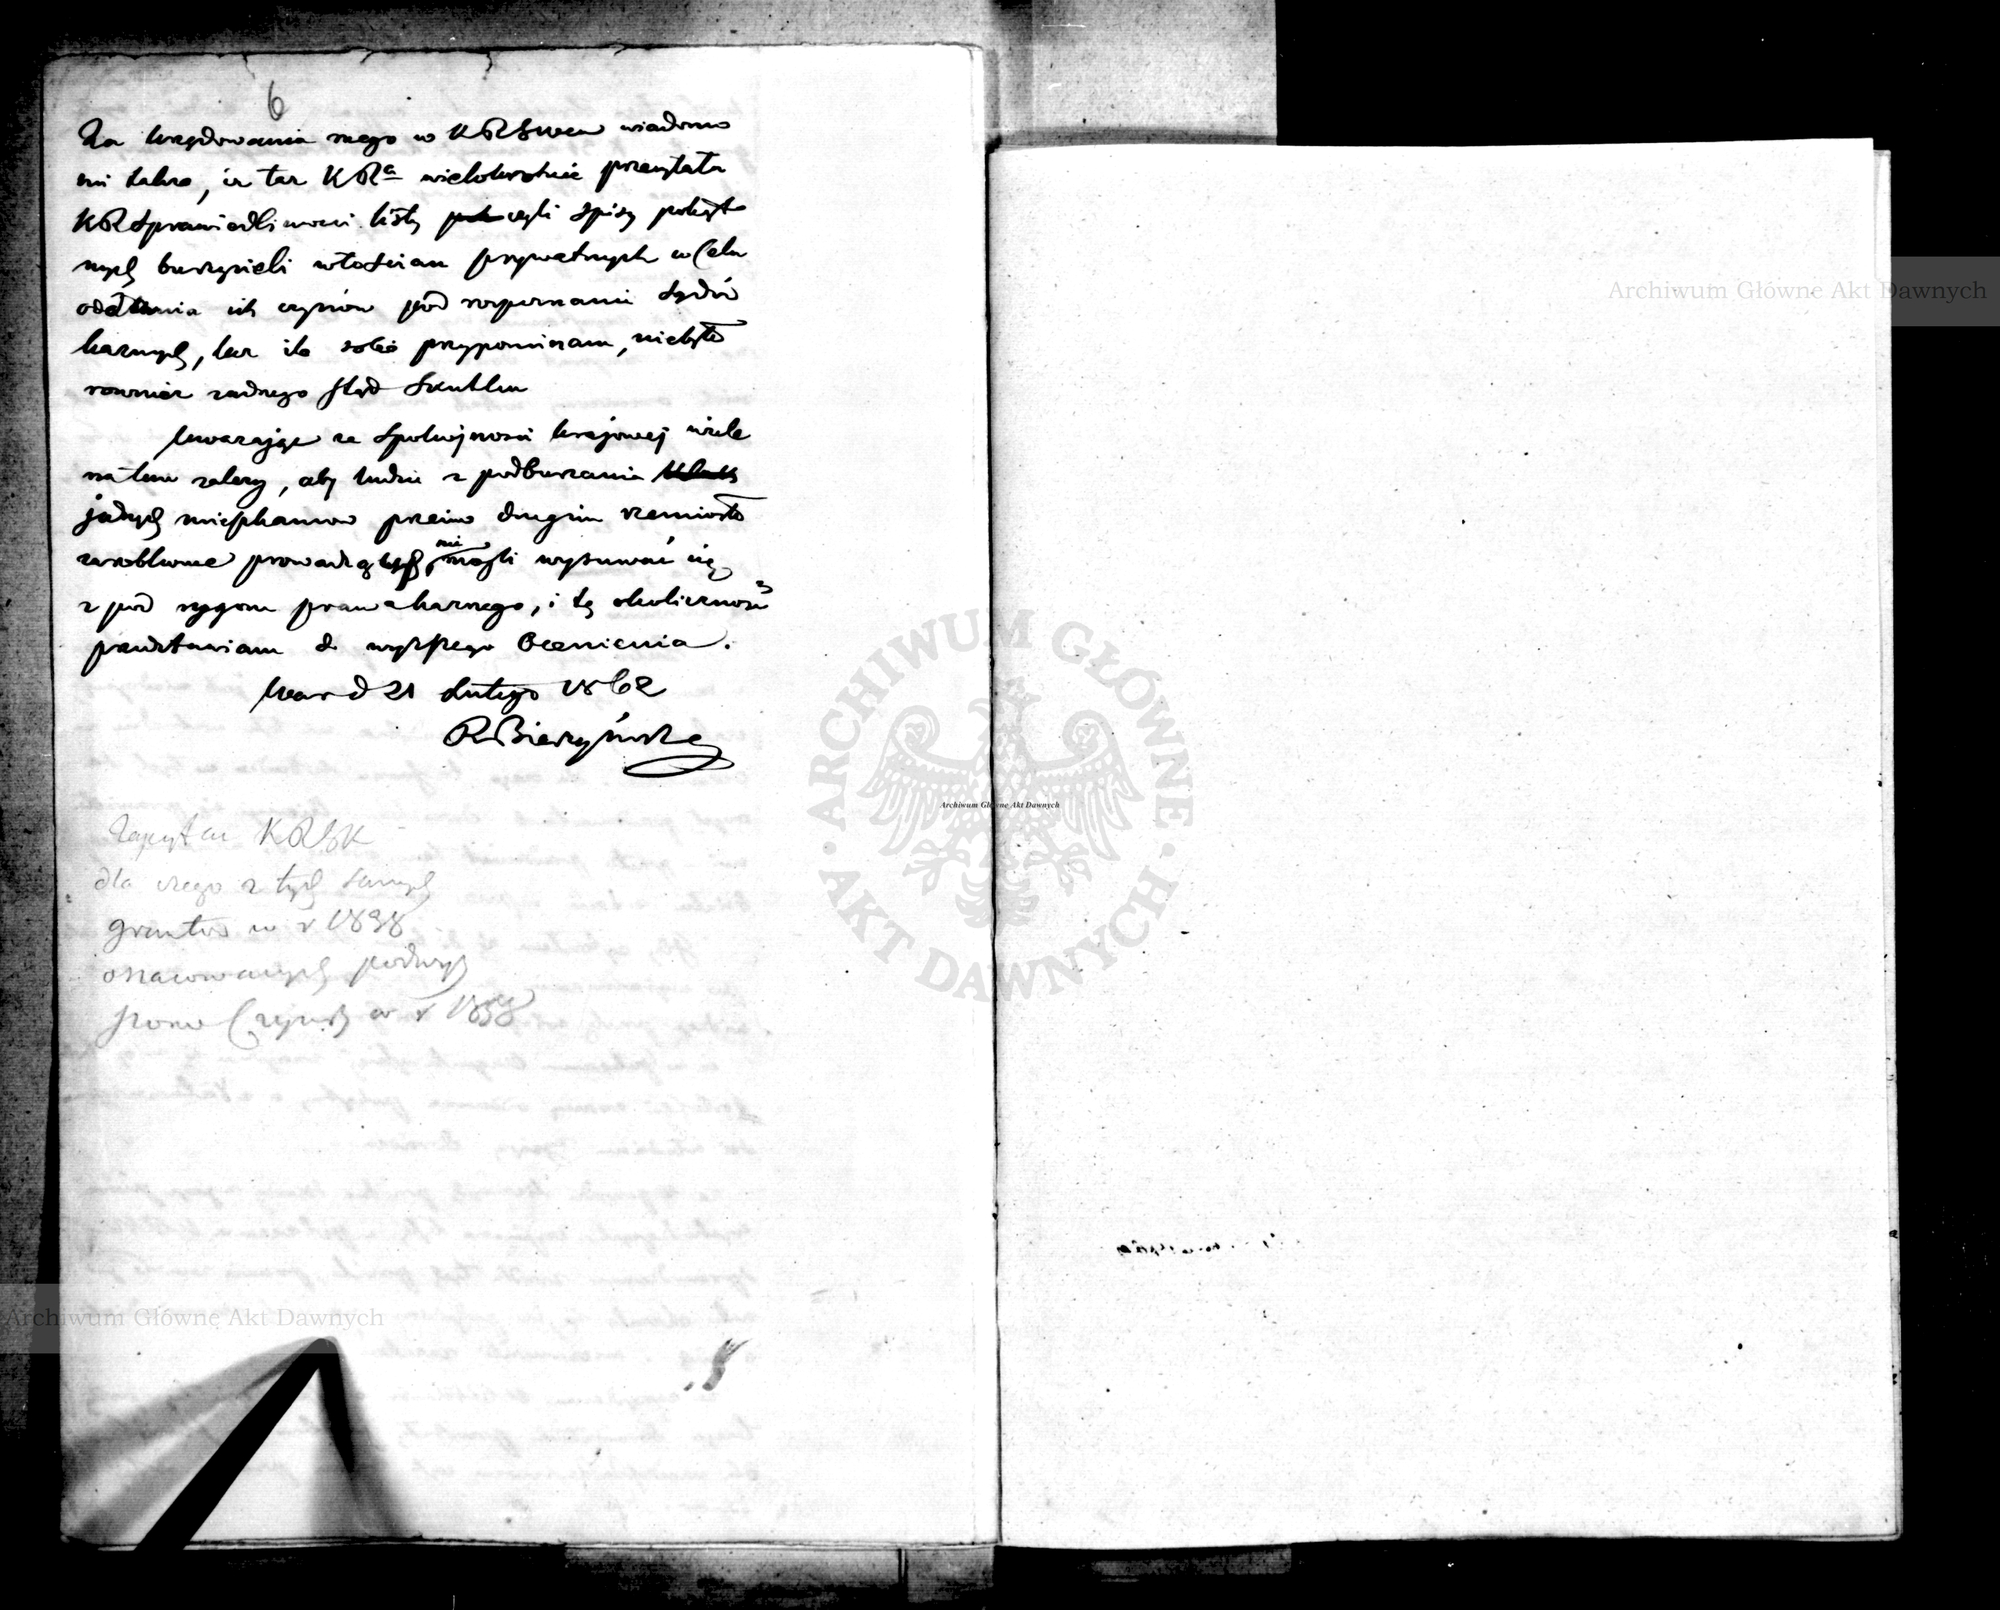 6
Za Urzędowania mego w KRSWew wiadomo
mi także, iż taż KRa wielokrotnie przesyłała
KRSprawiedliwości listy czyli spisy pokąt
nych burzycieli włościan prywatnych w Celu
oddania ich czynów pod rozpoznanie Sądów
karnych, lecz ile sobie przypominam, niebyło
rownież żadnego stąd Skutku
Uważając że Spokojności krajowej wiele
na tem zależy, aby ludzie z podburzania
jednych mieszkancow przeciw drugim rzemiosło
zarobkowe prowadzący, nie mogli wysuwać się
z pod rygoru prawa karnego, i tę okoliczność
przedstawiam do wyższego Ocenienia.
War d 21 Lutego 1862
RBierzyński
Zapytać KRSK
dla czego z tych samych
gruntów w r 1838
oszacowanych podwyż
szono Czynsz w r 1858
Archiwum Główne Akt Dawnych
ARCHIWUM GŁÓWNE
AKT DAWNYCH
Archiwum Główne Akt Dawnych
Archiwum Główne Akt Dawnych